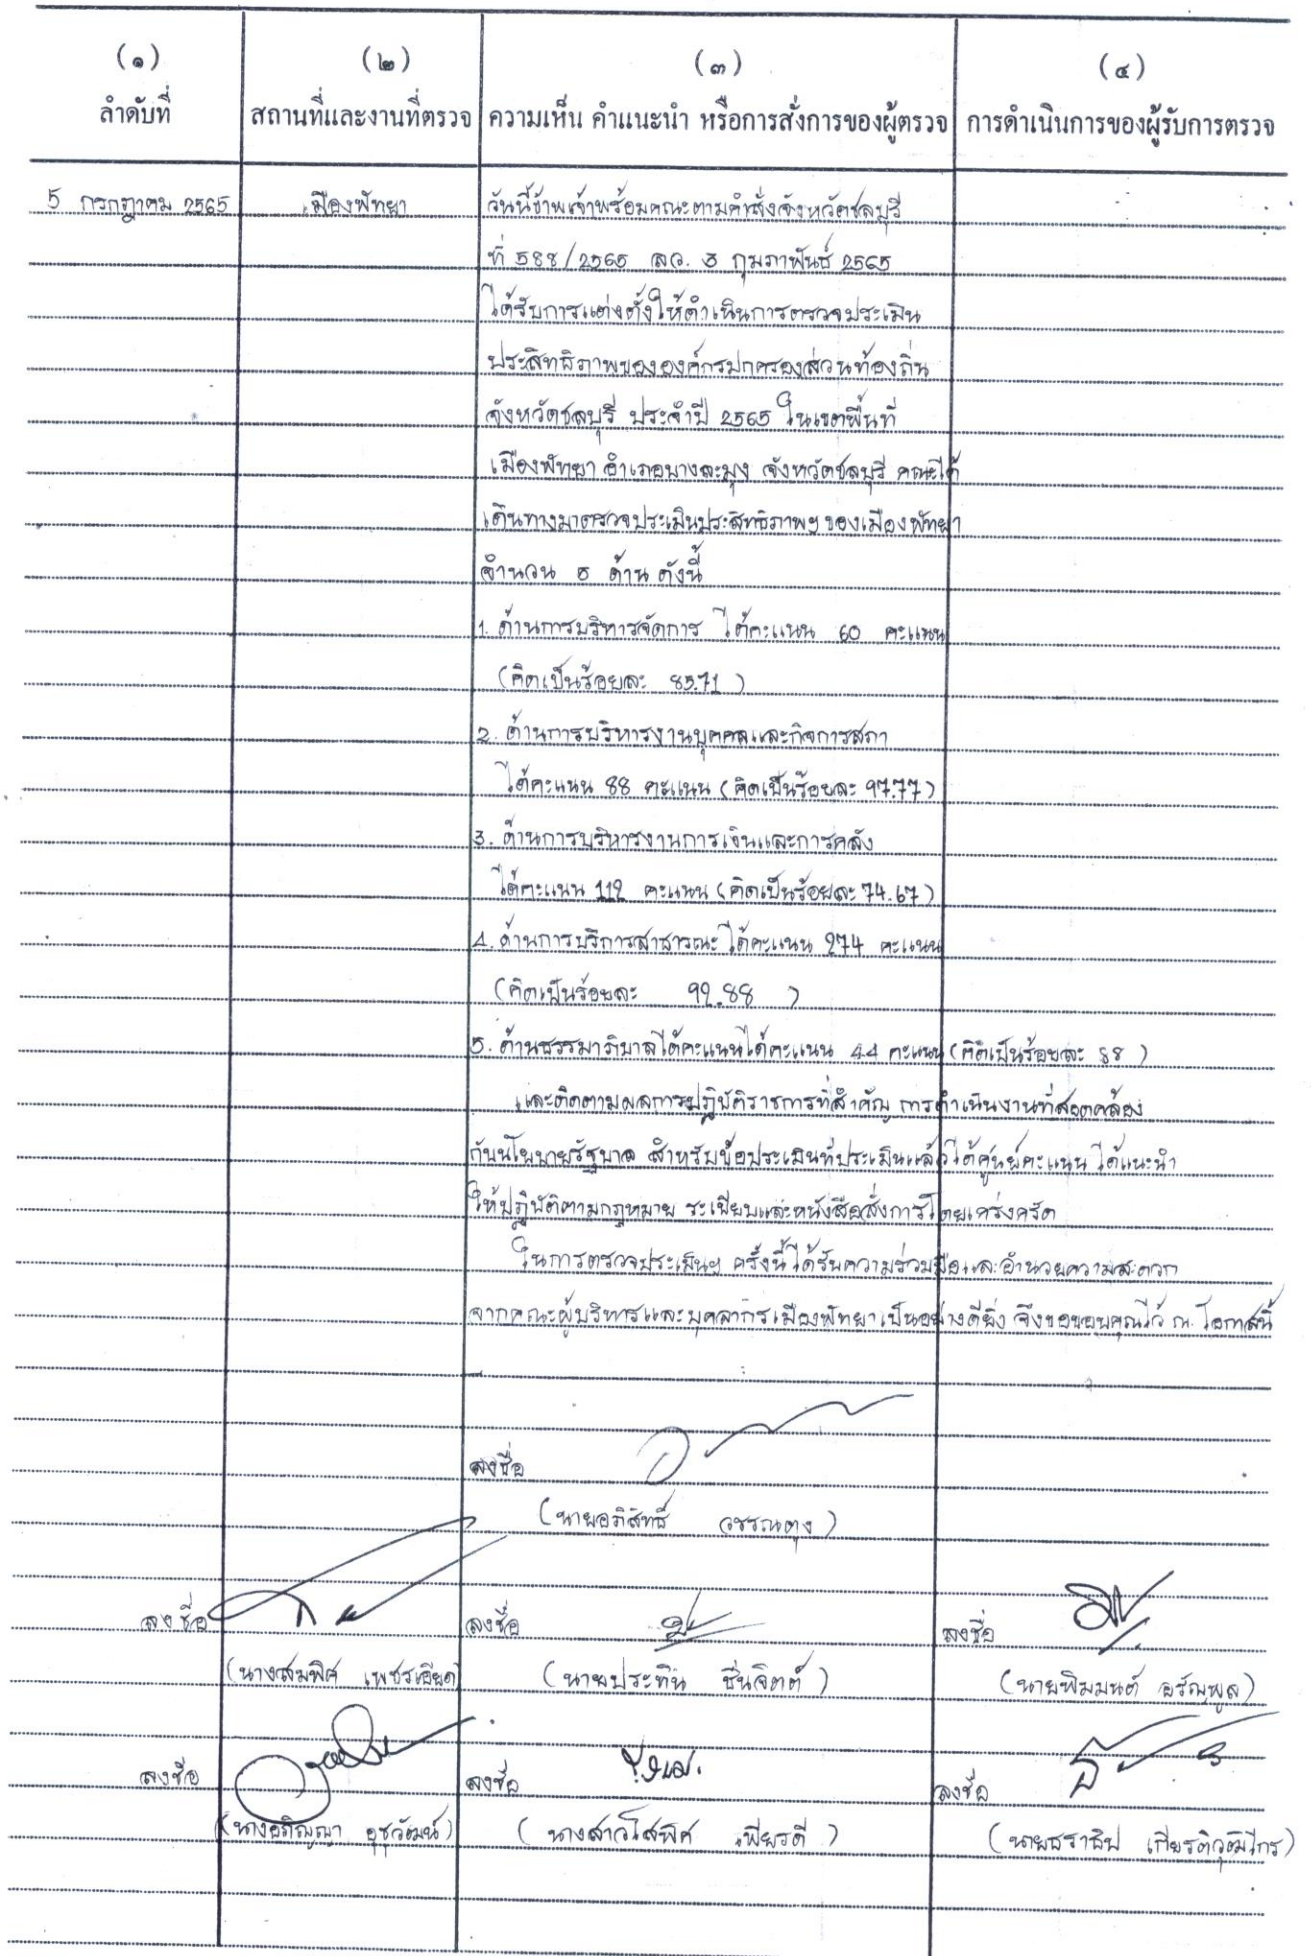 (๑)
(๒)
(๓)
(๔)
ลำดับที่
สถานที่และงานที่ตรวจ
ความเห็น คำแนะนำ หรือการสั่งการของผู้ตรวจ
การดำเนินการของผู้รับการตรวจ
5 กรกฎาคม 2565
เมืองพัทยา
วันนี้ข้าพเจ้าพร้อมคณะตามคำสั่งจังหวัดชลบุรี
ที่ 588/2565 ลว. 3 กุมภาพันธ์ 2565
ได้รับการแต่งตั้งให้ดำเนินการตรวจประเมิน
ประสิทธิภาพขององค์กรปกครองส่วนท้องถิ่น
จังหวัดชลบุรี ประจำปี 2565 ในเขตพื้นที่
เมืองพัทยา อำเภอบางละมุง จังหวัดชลบุรี คณะได้
เดินทางมาตรวจประเมินประสิทธิภาพฯ ของเมืองพัทยา
จำนวน 5 ด้าน ดังนี้
1. ด้านการบริหารจัดการ ได้คะแนน 60 คะแนน
(คิดเป็นร้อยละ 85.71)
2. ด้านการบริหารงานบุคคลและกิจการสภา
ได้คะแนน 88 คะแนน (คิดเป็นร้อยละ 97.77)
3. ด้านการบริหารงานการเงินและการคลัง
ได้คะแนน 112 คะแนน (คิดเป็นร้อยละ 74.67)
4. ด้านการบริการสาธารณะ ได้คะแนน 274 คะแนน
(คิดเป็นร้อยละ 92.88)
5. ด้านธรรมาภิบาลได้คะแนนได้คะแนน 44 คะแนน (คิดเป็นร้อยละ 88)
และติดตามผลการปฏิบัติราชการที่สำคัญ การดำเนินงานที่สอดคล้อง
กับนโยบายรัฐบาล สำหรับข้อประเมินที่ประเมินแล้วได้ศูนย์คะแนน ได้แนะนำ
ให้ปฏิบัติตามกฎหมาย ระเบียบและหนังสือสั่งการโดยเคร่งครัด
ในการตรวจประเมินฯ ครั้งนี้ได้รับความร่วมมือและอำนวยความสะดวก
จากคณะผู้บริหารและบุคลากรเมืองพัทยาเป็นอย่างดียิ่ง จึงขอขอบคุณไว้ ณ โอกาสนี้
ลงชื่อ
(นายอภิสิทธิ์ วรรณตุง)
ลงชื่อ
ลงชื่อ
ลงชื่อ
(นางสมพิศ เพชรเอียด)
(นายประทิน ชื่นจิตต์)
(นายพิมมนต์ อรัญพูล)
ลงชื่อ
ลงชื่อ
ลงชื่อ
(นางอภิญญา อุชุวัฒน์)
(นางสาวโสพิศ เพียรดี)
(นายธราธิป เกียรติวุฒิไกร)